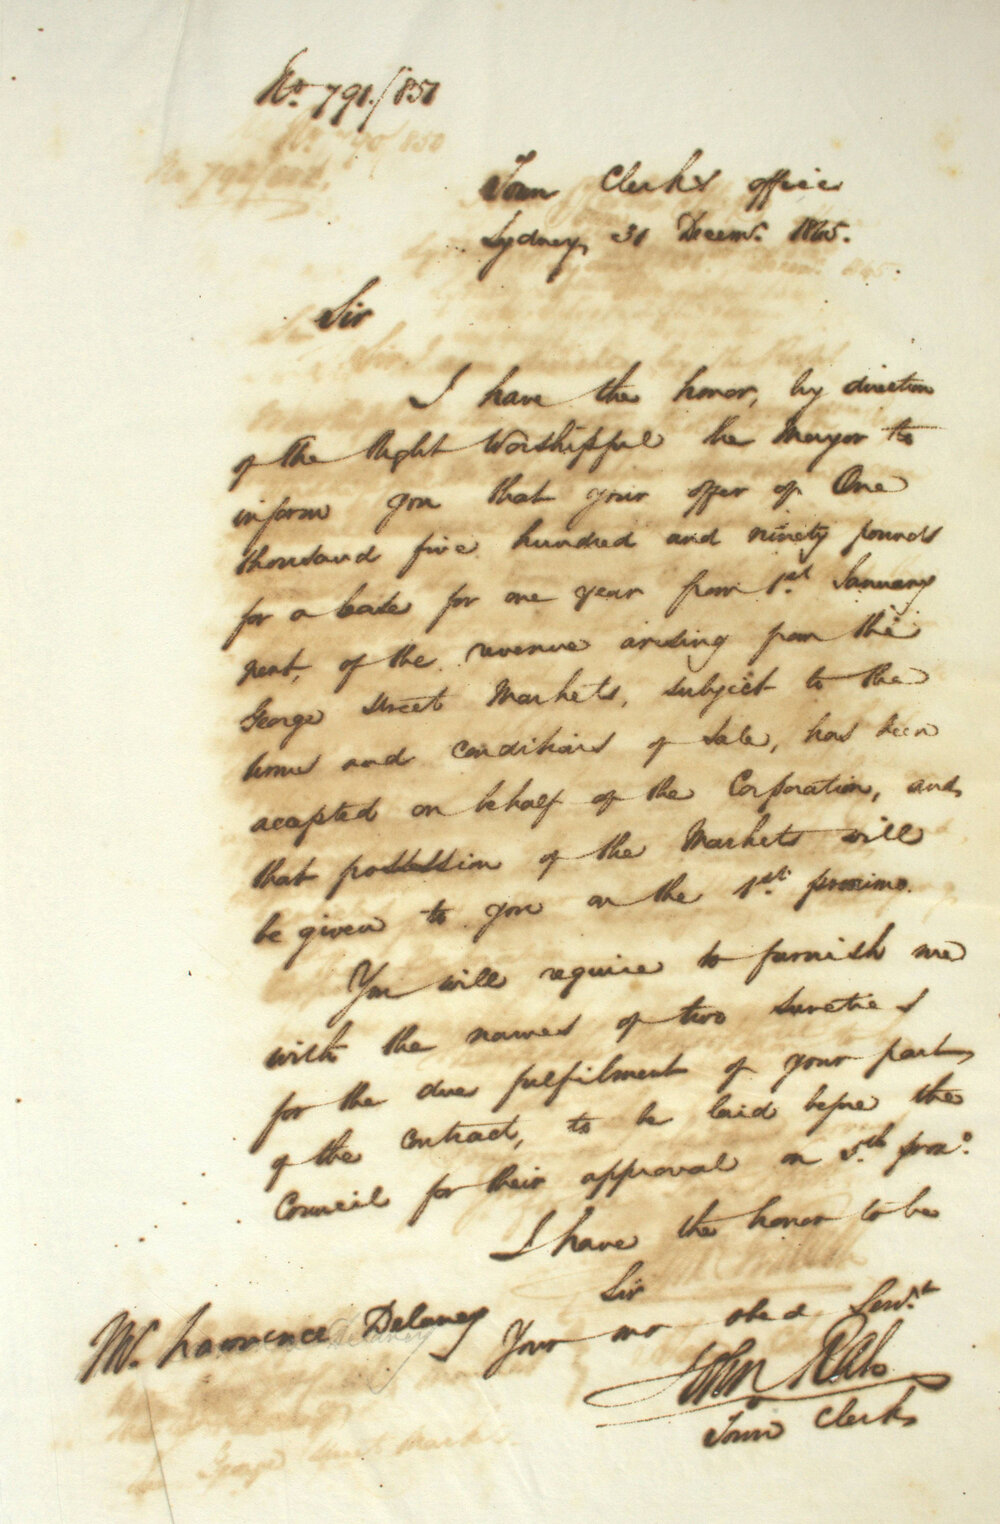 No. 791./851
Town Clerk's office
Sydney, 31 Decemr. 1845.
Sir
I have the honor, by direction
of the Right Worshipful the Mayor to
inform you that your offer of One
thousand five hundred and ninety pounds
for a lease for one year from 1st January
next, of the revenue arising from the
George Street Markets, subject to the
terms and conditions of sale, has been
accepted on behalf of the Corporation, and
that possession of the Markets will
be given to you on the 1st proximo.
You will require to furnish me
with the names of two sureties
for the due fulfilment of your part
of the contract, to be laid before the
Council for their approval on 5th proxo.
I have the honor to be
Sir
Your mo obed Servt
John Rae
Town Clerk
Mr. Lawrence Delaney
Delaney